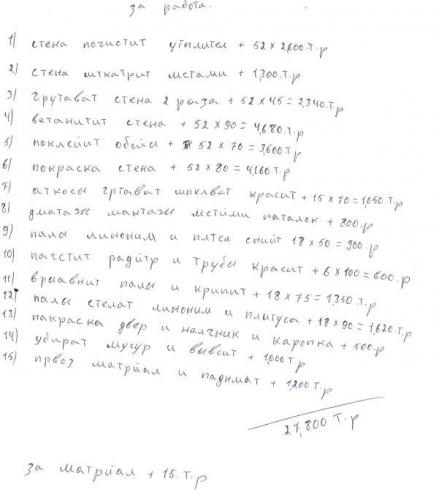 за работа.
1) стена почистит утплител + 52 x 2,600 т.р
2) стена шткатрит местами + 1,300. т. р
3) грутават стена 2 раза + 52 x 45 = 2,340 т.р
4) ветанитит стена + 52 x 90 = 4,680. т.р
5) поклейт обойи + 52 x 70 = 3,600 т.р
6) покраска стена + 52 x 80 = 4,160 т.р
7) аткосы гртават шпклват красит + 15 x 70 = 1050 т.р
8) дматаж мантаж местими паталок + 800. р
9) палы линоним и плтса сний 18 x 50 = 900. р
10) пачстит радйтр и трубы красит + 6 x 100 = 600. р
11) врыавнит палы и крипит + 18 x 75 = 1,350 т.р
12) палы стелат линоним и плитуса + 18 x 90 = 1,620 т.р
13) пакраска двер и налчник и каропка + 500. р
14) убират мусур и вывсит + 1,000 т.р
15) првоз матрйал и паднмат + 1,200 т.р
27,800 т.р
за матрйал + 15. т.р